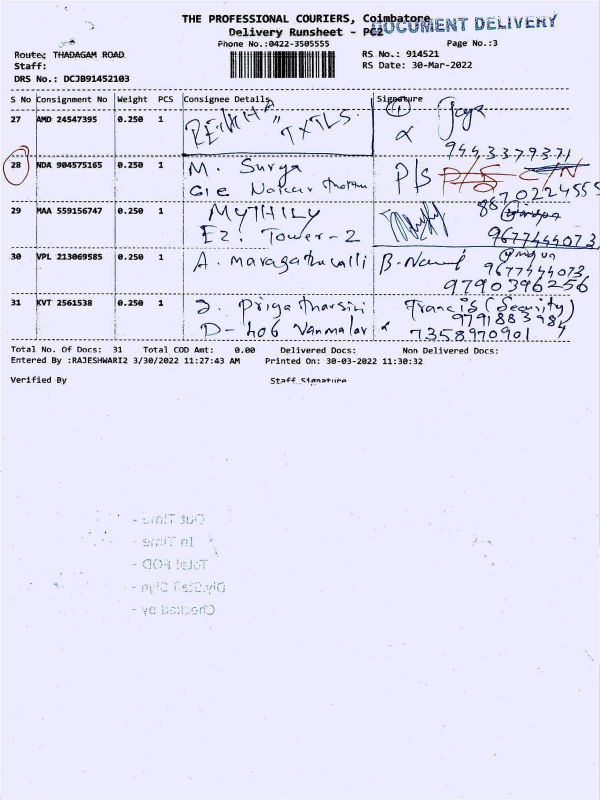 THE PROFESSIONAL COURIERS, Coimbatore
DOCUMENT DELIVERY
Delivery Runsheet - PC2
Phone No.:0422-3505555
Page No.:3
Route: THADAGAM ROAD
RS No.: 914521
Staff:
RS Date: 30-Mar-2022
DRS No.: DCJB91452103
S No Consignment No Weight PCS Consignee Details Signature
27 AMD 24547395 0.250 1 TXTLS. 1 Jaya
9443379371
28 NDA 904575165 0.250 1 M. Surya P/S P/S C/N
8870224555
29 MAA 559156747 0.250 1 MYTHILY
E2. Tower-2 9677444073
30 VPL 213069585 0.250 1 A. maragathavalli B.
9677444073
9790396256
31 KVT 2561538 0.250 1 J. Priyatharsini Francis (Security)
9791883984
D-406 Vanmalar & 7358970901
Total No. Of Docs: 31 Total COD Amt: 0.00 Delivered Docs: Non Delivered Docs:
Entered By :RAJESHWARI2 3/30/2022 11:27:43 AM Printed On: 30-03-2022 11:30:32
Verified By Staff Signature
Out Time -
In Time -
Total POD -
Dly.Staff Sign -
Checked by -